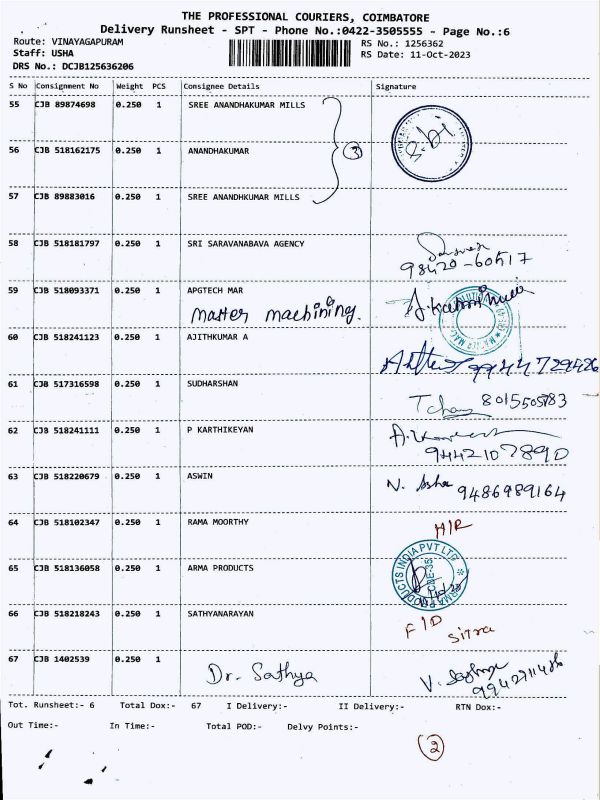 THE PROFESSIONAL COURIERS, COIMBATORE
Delivery Runsheet - SPT - Phone No.:0422-3505555 - Page No.:6
Route: VINAYAGAPURAM RS No.: 1256362
Staff: USHA RS Date: 11-Oct-2023
DRS No.: DCJB125636206
S No Consignment No Weight PCS Consignee Details Signature
55 CJB 89874698 0.250 1 SREE ANANDHAKUMAR MILLS
56 CJB 518162175 0.250 1 ANANDHAKUMAR 3
57 CJB 89883016 0.250 1 SREE ANANDHKUMAR MILLS
58 CJB 518181797 0.250 1 SRI SARAVANABAVA AGENCY
98420-60517
59 CJB 518093371 0.250 1 APGTECH MAR
Master machining.
60 CJB 518241123 0.250 1 AJITHKUMAR A
9944729426
61 CJB 517316598 0.250 1 SUDHARSHAN
62 CJB 518241111 0.250 1 P KARTHIKEYAN
9442107890
63 CJB 518220679 0.250 1 ASWIN
N. Asha 9486989164
64 CJB 518102347 0.250 1 RAMA MOORTHY
65 CJB 518136058 0.250 1 ARMA PRODUCTS
ARMA PRODUCTS INDIA PVT LTD
66 CJB 518218243 0.250 1 SATHYANARAYAN
F/D Sitra
67 CJB 1402539 0.250 1 Dr. Sathya
Tot. Runsheet:- 6 Total Dox:- 67 I Delivery:- II Delivery:- RTN Dox:-
Out Time:- In Time:- Total POD:- Delvy Points:-
2